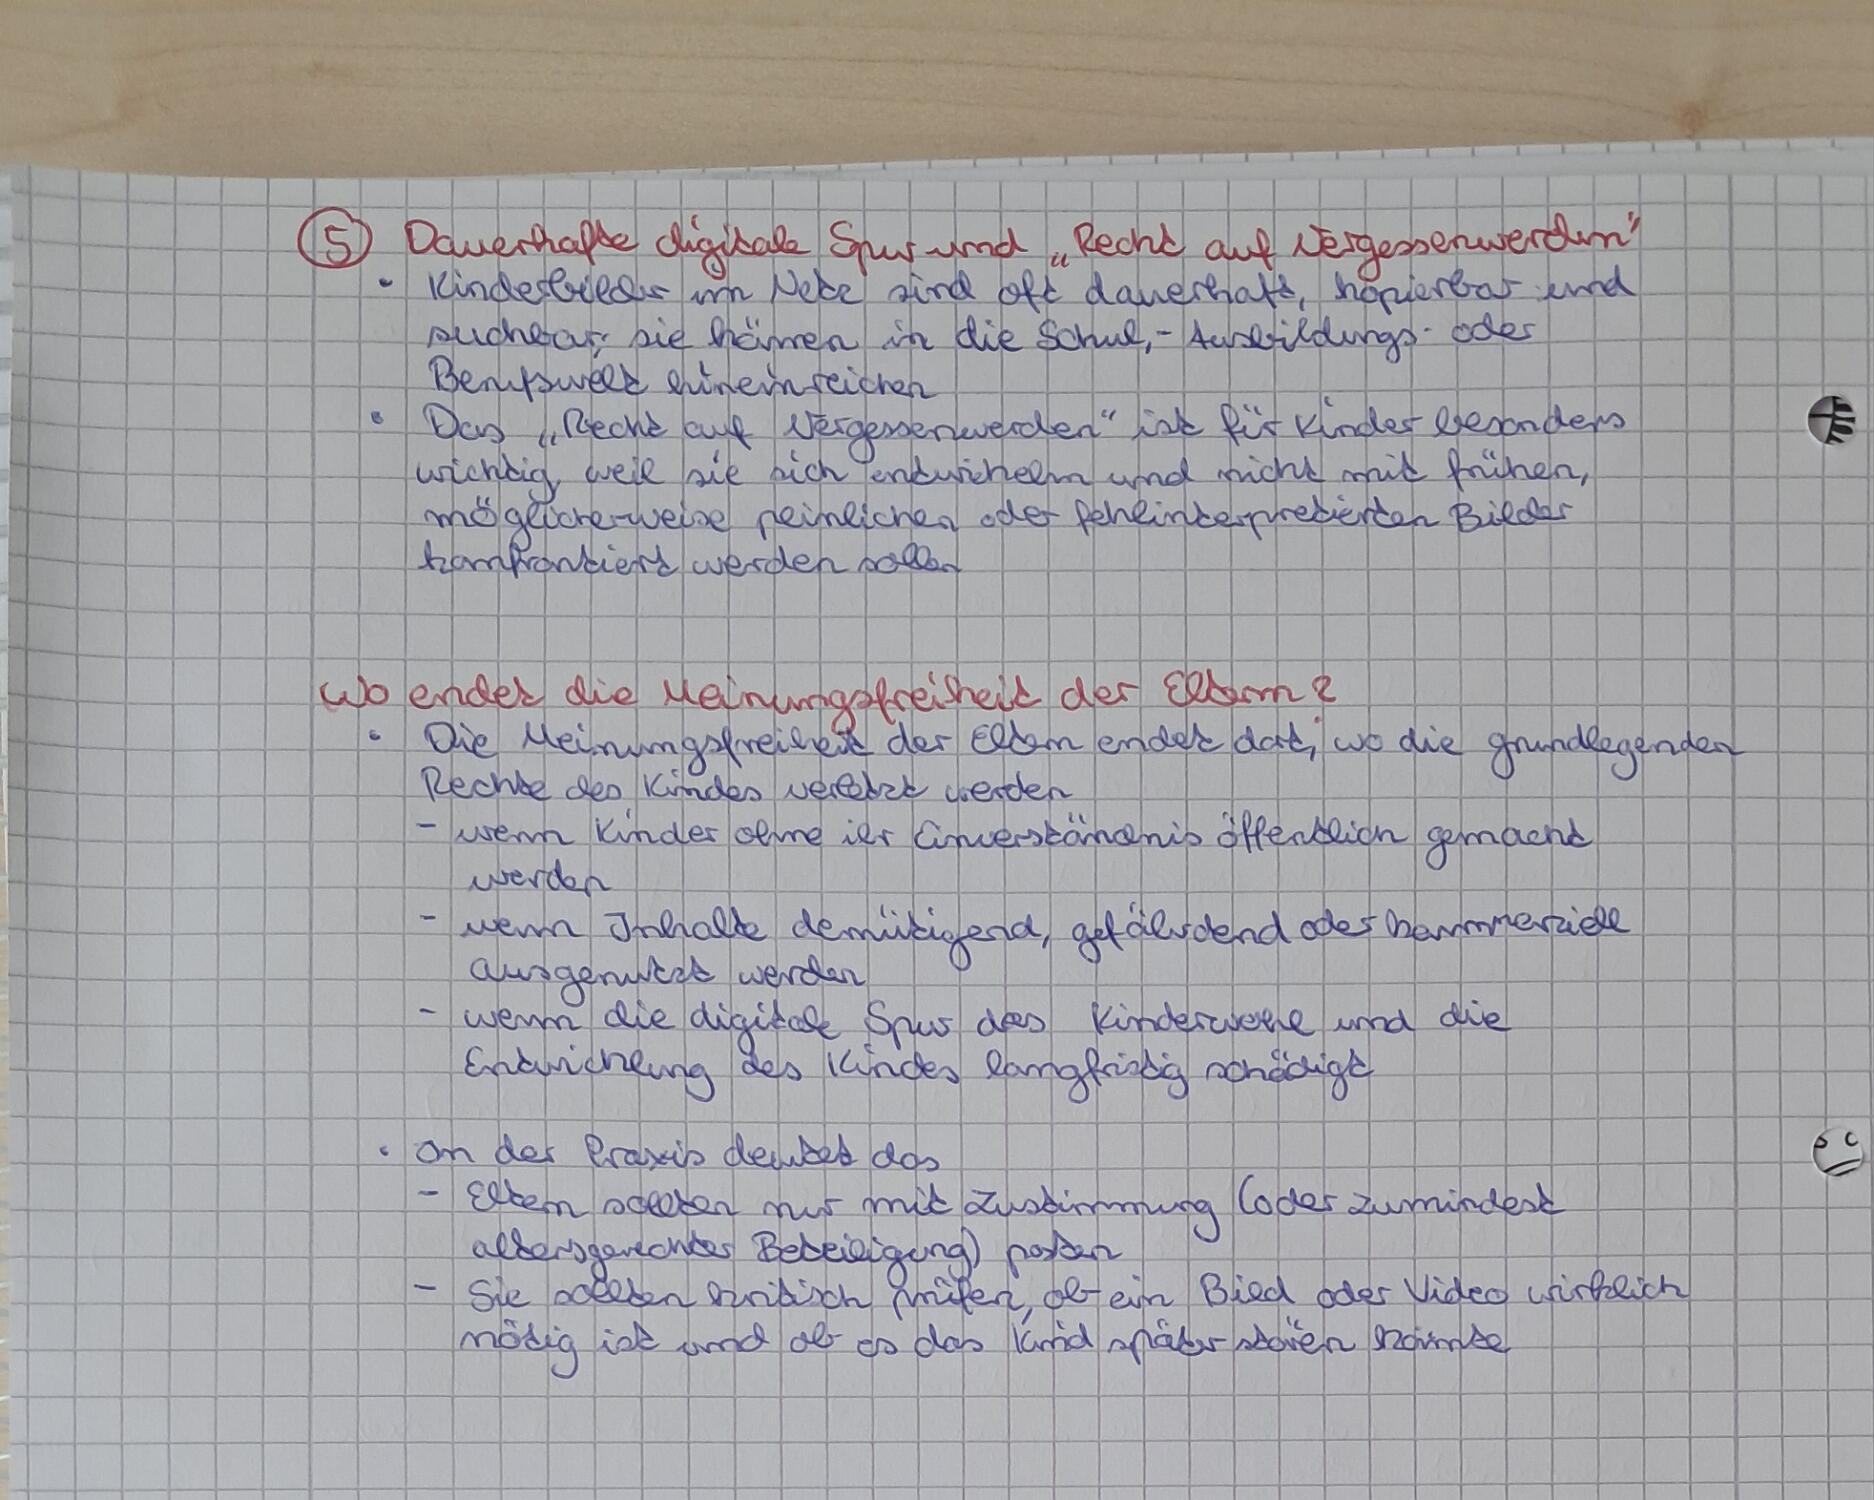 5 Dauerhafte digitale Spur und „Recht auf Vergessenwerden"
• Kinderbilder im Netz sind oft dauerhaft, kopierbar und
suchbar; sie können in die Schul,- Ausbildungs- oder
Berufswelt hineinreichen
• Das „Recht auf Vergessenwerden" ist für Kinder besonders
wichtig, weil sie sich entwickeln und nicht mit frühen,
möglicherweise peinlichen oder fehlinterpretierten Bilder
konfrontiert werden sollen
Wo endet die Meinungsfreiheit der Eltern?
• Die Meinungsfreiheit der Eltern endet dort, wo die grundlegenden
Rechte des Kindes verletzt werden
- wenn Kinder ohne ihr Einverständnis öffentlich gemacht
werden
- wenn Inhalte demütigend, gefährdend oder kommerziell
ausgenutzt werden
- wenn die digitale Spur das Kinderwohl und die
Entwicklung des Kindes langfristig schädigt
• In der Praxis deutet das
- Eltern sollten nur mit Zustimmung (oder zumindest
altersgerechter Beteiligung) posten
- Sie sollten kritisch prüfen, ob ein Bild oder Video wirklich
nötig ist und ob es das Kind später stören könnte